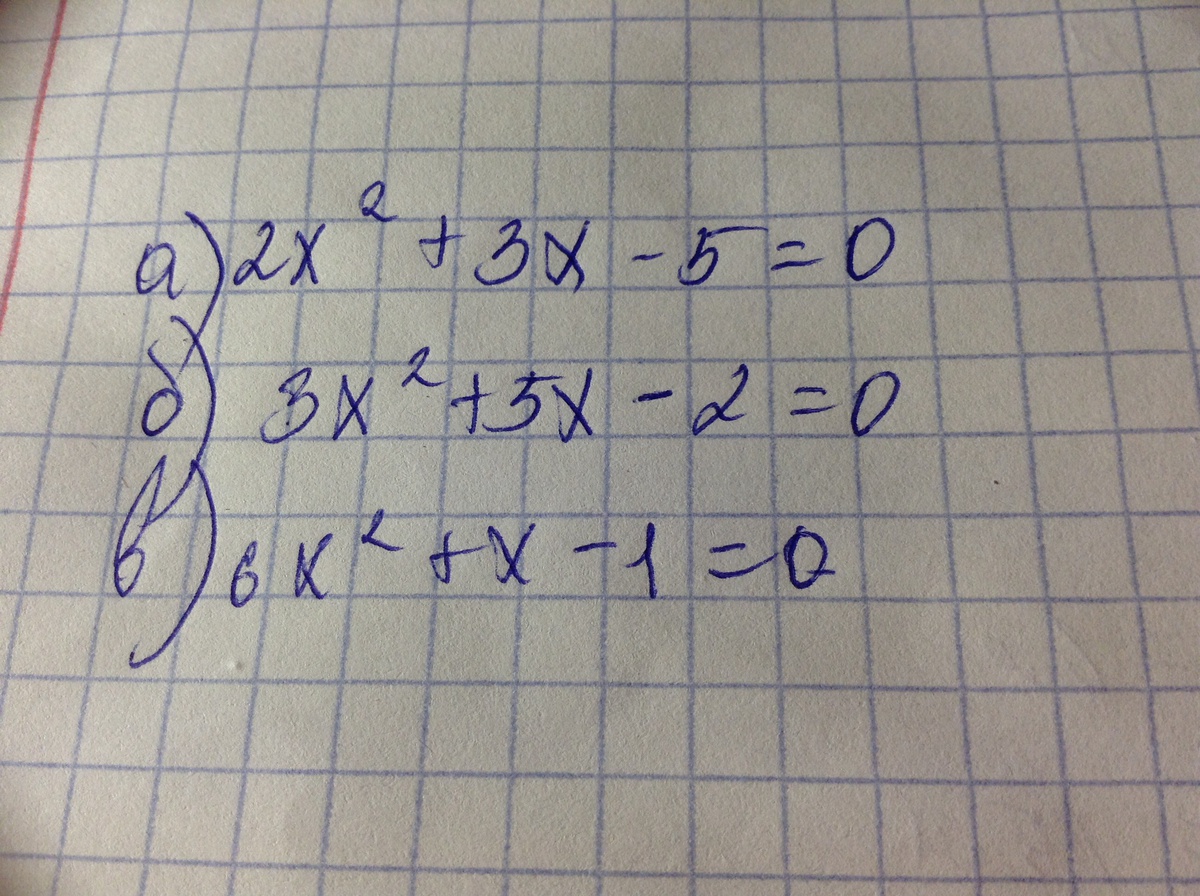 а) 2x² + 3x - 5 = 0
б) 3x² + 5x - 2 = 0
в) 6x² + x - 1 = 0